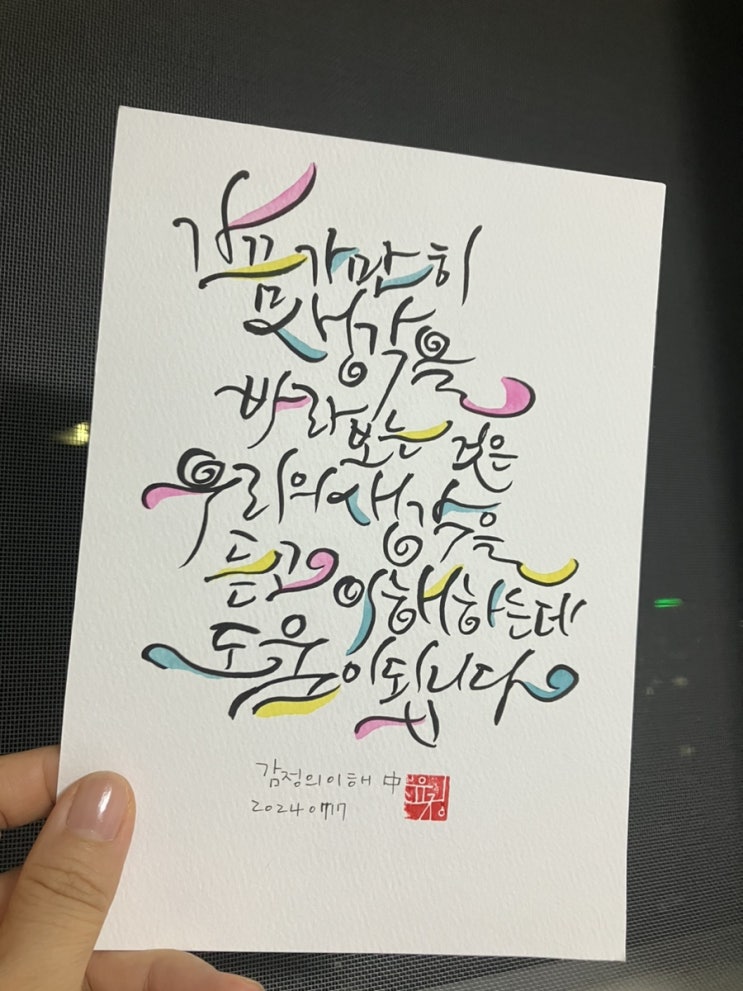 가끔 가만히
생각을
바라보는 것은
우리의 생각을
듣고 이해하는데
도움이 됩니다
감정의이해 中
2024 0717